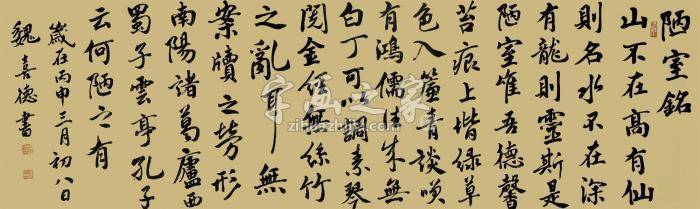 陋室銘
山不在高有仙
則名水不在深
有龍則靈斯是
陋室惟吾德馨
苔痕上堦綠草
色入簾青談咲
有鴻儒往來無
白丁可以調素琴
閱金經無絲竹
之亂耳無
案牘之勞形
南陽諸葛廬西
蜀子雲亭孔子
云何陋之有
歲在丙申三月初八日
魏喜德書